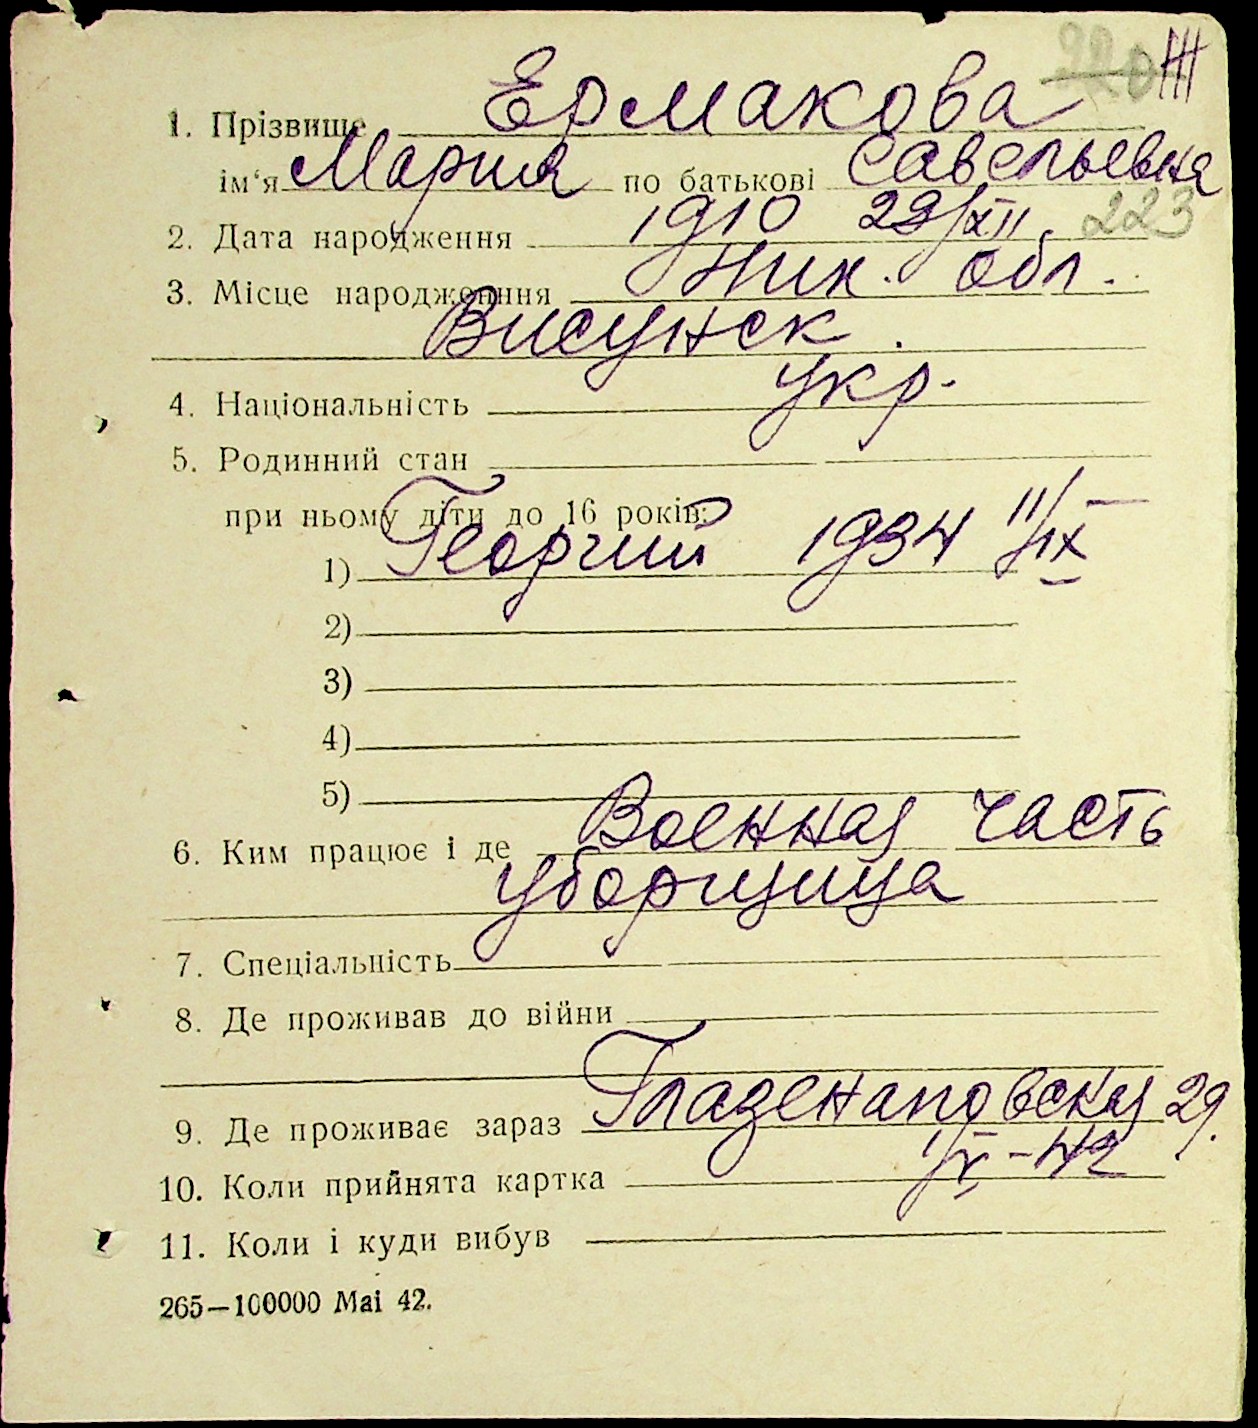 Ж
1. Прізвище Ермакова
ім‘я Мария по батькові Савельевна
2. Дата народження 1910 29/XII. 223
3. Місце народженння Ник. обл.
Висунск.
4. Національність укр.
5. Родинний стан
при ньому діти до 16 років:
1) Георгий 1934 11/IX
2)
3)
4)
5)
6. Ким працює і де Военная часть
уборщица
7. Спеціальність
8. Де проживав до війни
9. Де проживає зараз Глазенаповская 29.
10. Коли прийнята картка 1/X-42
11. Коли і куди вибув
265—100000 Mai 42.